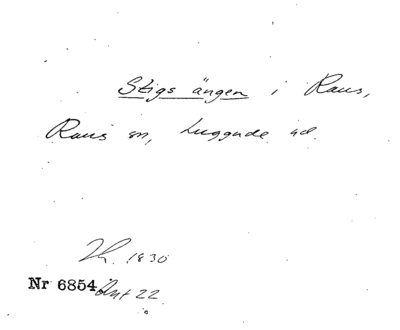 Stigs ängen i Raus,
Raus sn, Luggude hd.
1830
Nr 6854 22.